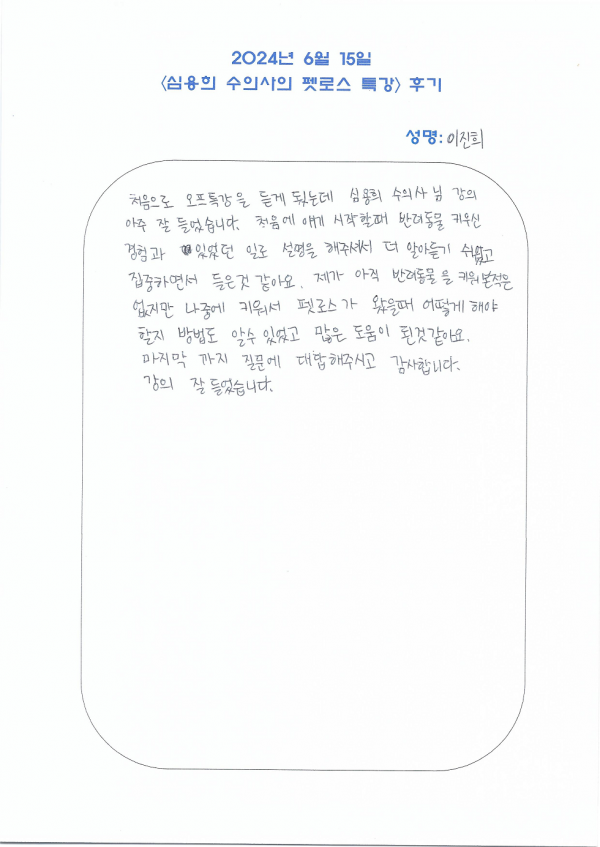 2024년 6월 15일
<심용희 수의사의 펫로스 특강> 후기
성명: 이진희
처음으로 오프특강을 듣게 됐는데 심용희 수의사님 강의
아주 잘 들었습니다. 처음에 얘기 시작할때 반려동물 키우신
경험과 있었던 일로 설명을 해주셔서 더 알아듣기 쉬웠고
집중하면서 들은것 같아요. 제가 아직 반려동물을 키워본적은
없지만 나중에 키워서 펫로스가 왔을때 어떻게 해야
할지 방법도 알수 있었고 많은 도움이 된것같아요.
마지막 까지 질문에 대답해주시고 감사합니다.
강의 잘 들었습니다.